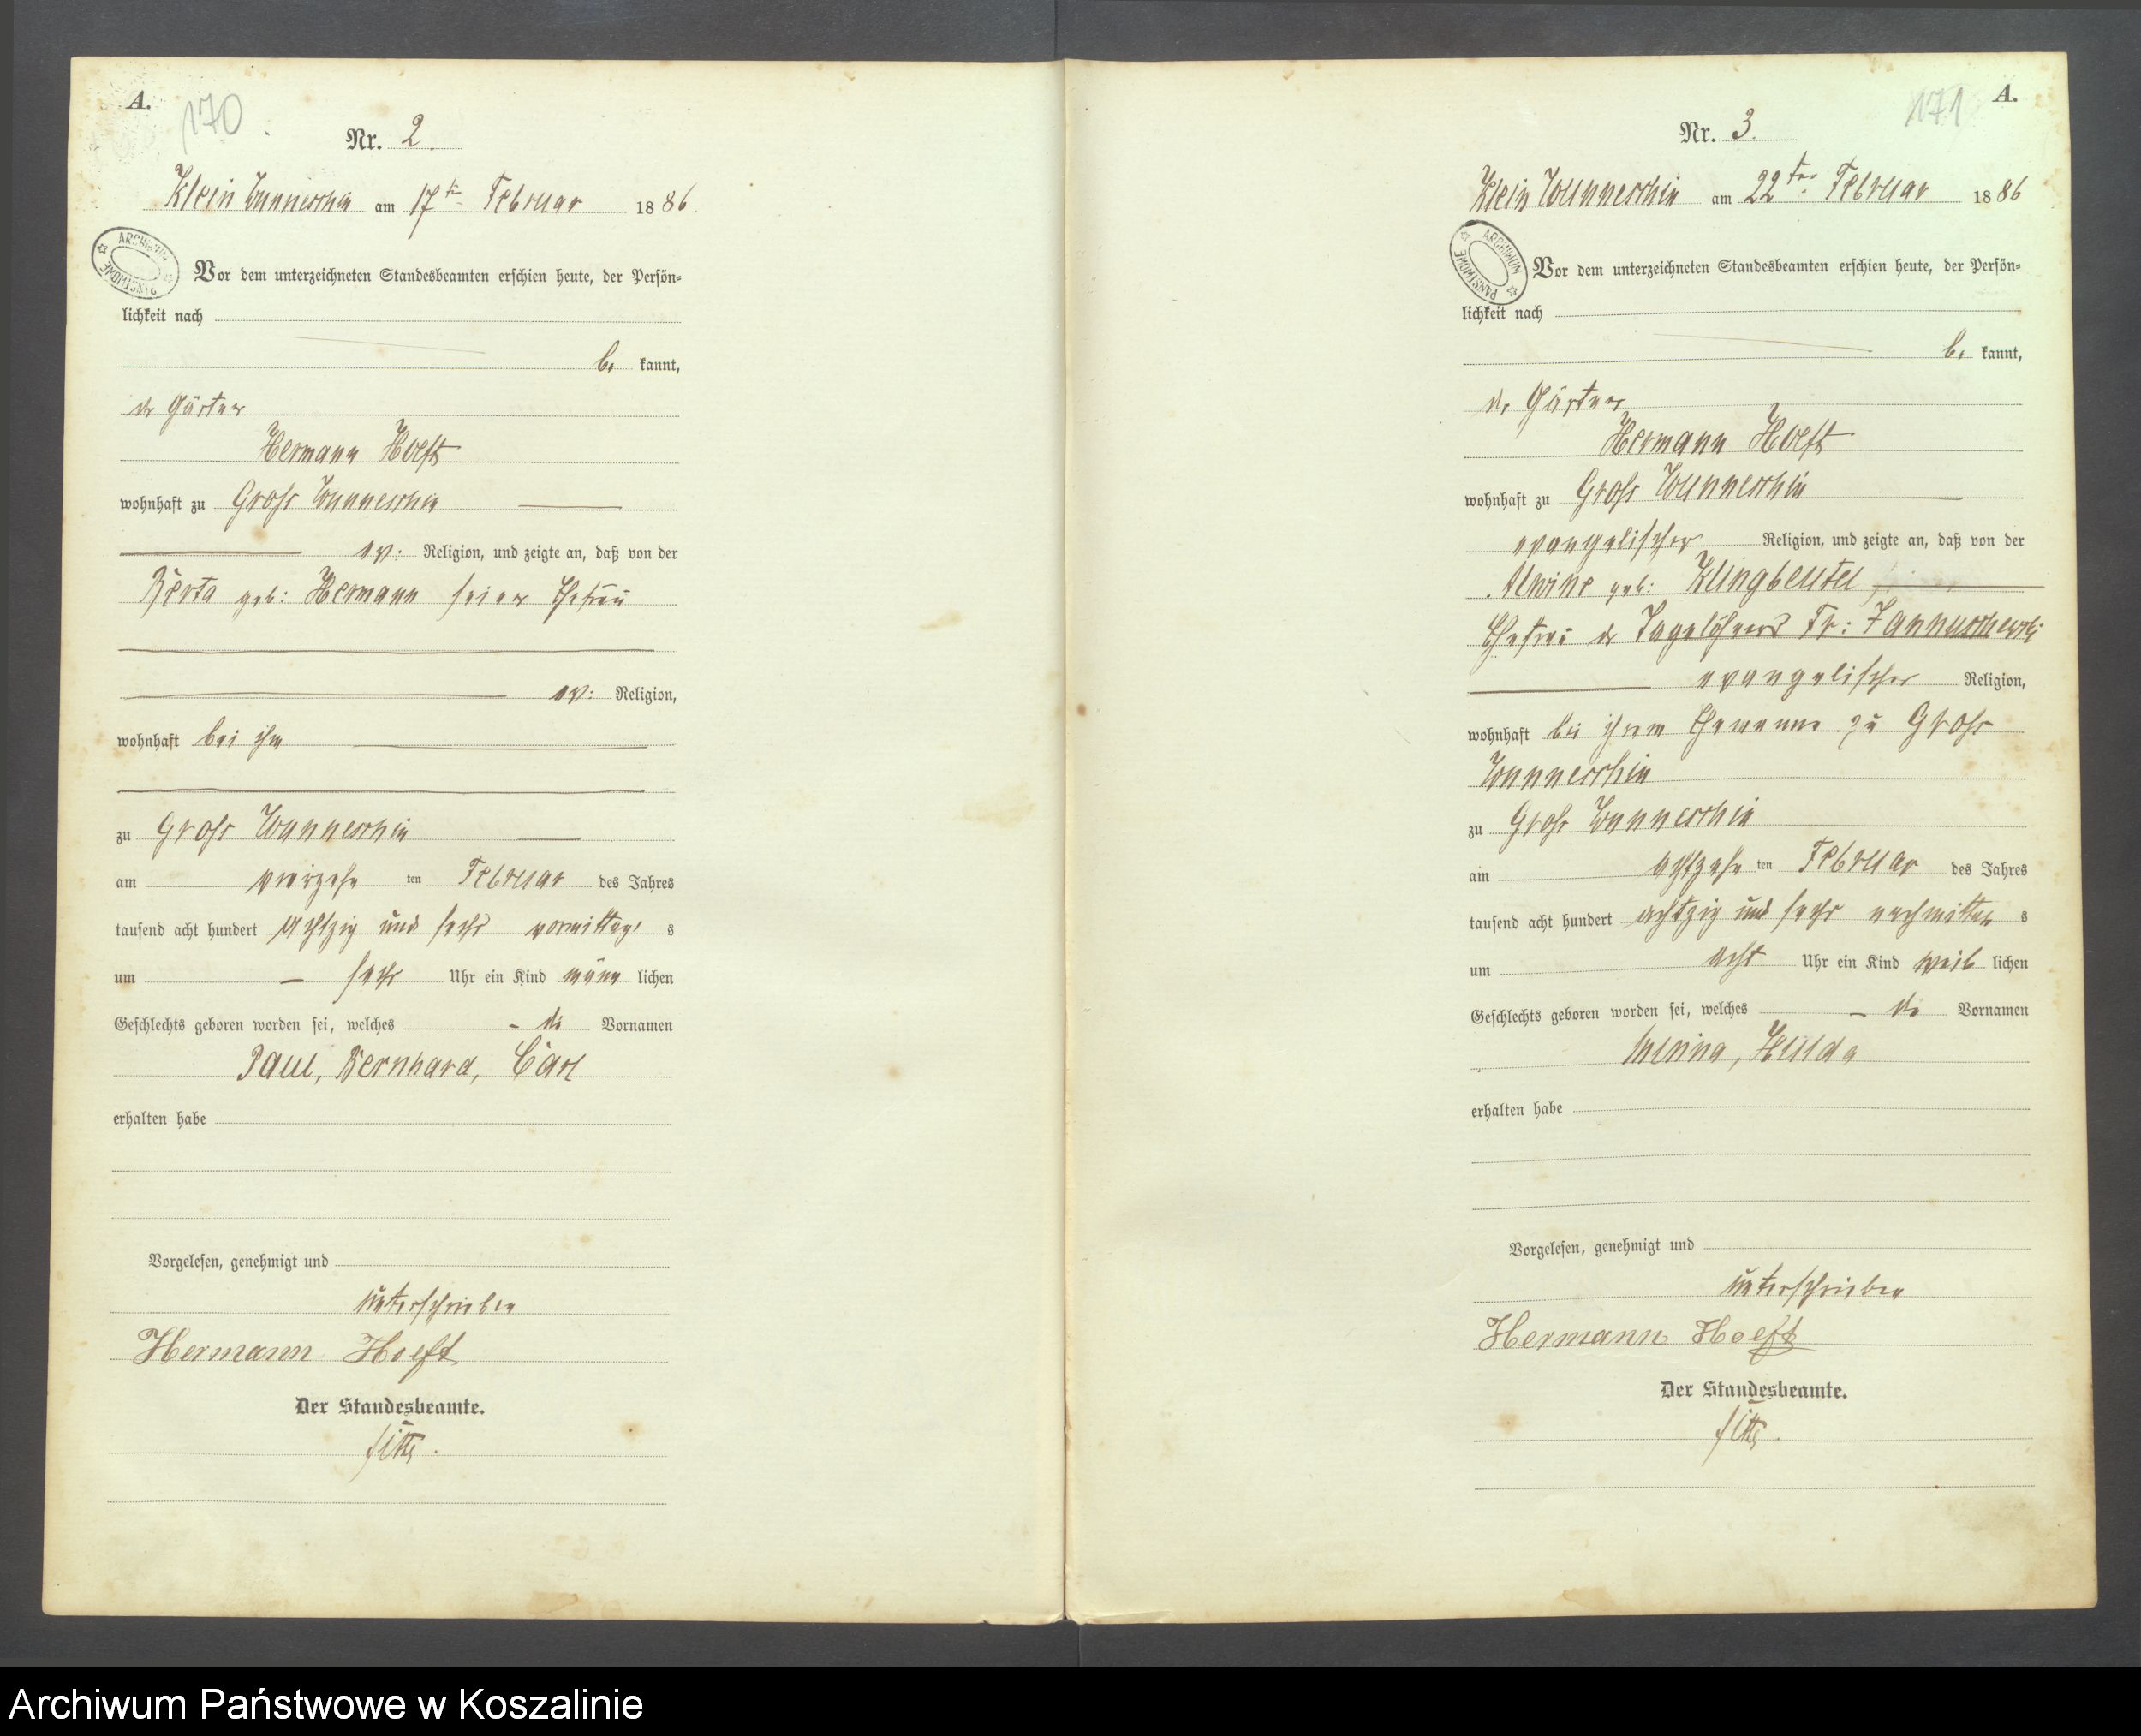 A.
170
Nr. 2.
Klein Wunneschin am 17ten Februar 1886.
ARCHIWUM PAŃSTWOWE
Vor dem unterzeichneten Standesbeamten erschien heute, der Persön=
lichkeit nach
be kannt,
der Gärtner
Hermann Hoeft
wohnhaft zu Gross Wunneschin
ev: Religion, und zeigte an, daß von der
Berta geb: Hermann seiner Ehefrau
ev: Religion,
wohnhaft bei ihm
zu Gross Wunneschin
am vierzehn ten Februar des Jahres
tausend acht hundert achtzig und sechs vormittag s
um sechs Uhr ein Kind männ lichen
Geschlechts geboren worden sei, welches die Vornamen
Paul, Bernhard, Carl
erhalten habe
Vorgelesen, genehmigt und
unterschrieben
Hermann Hoeft
Der Standesbeamte.
A.
171
Nr. 3.
Klein Wunneschin am 22ten Februar 1886
ARCHIWUM PAŃSTWOWE
Vor dem unterzeichneten Standesbeamten erschien heute, der Persön=
lichkeit nach
be kannt,
der Gärtner
Hermann Hoeft
wohnhaft zu Gross Wunneschin
evangelischer Religion, und zeigte an, daß von der
Alwine geb: Klingbeutel
Ehefrau des Tagelöhners Fr: Jannuschewski
evangelischer Religion,
wohnhaft bei ihrem Ehemanne zu Gross
Wunneschin
zu Gross Wunneschin
am achtzehn ten Februar des Jahres
tausend acht hundert achtzig und sechs nachmittag s
um acht Uhr ein Kind weib lichen
Geschlechts geboren worden sei, welches die Vornamen
Minna, Hulda
erhalten habe
Vorgelesen, genehmigt und
unterschrieben
Hermann Hoeft
Der Standesbeamte.
Archiwum Państwowe w Koszalinie